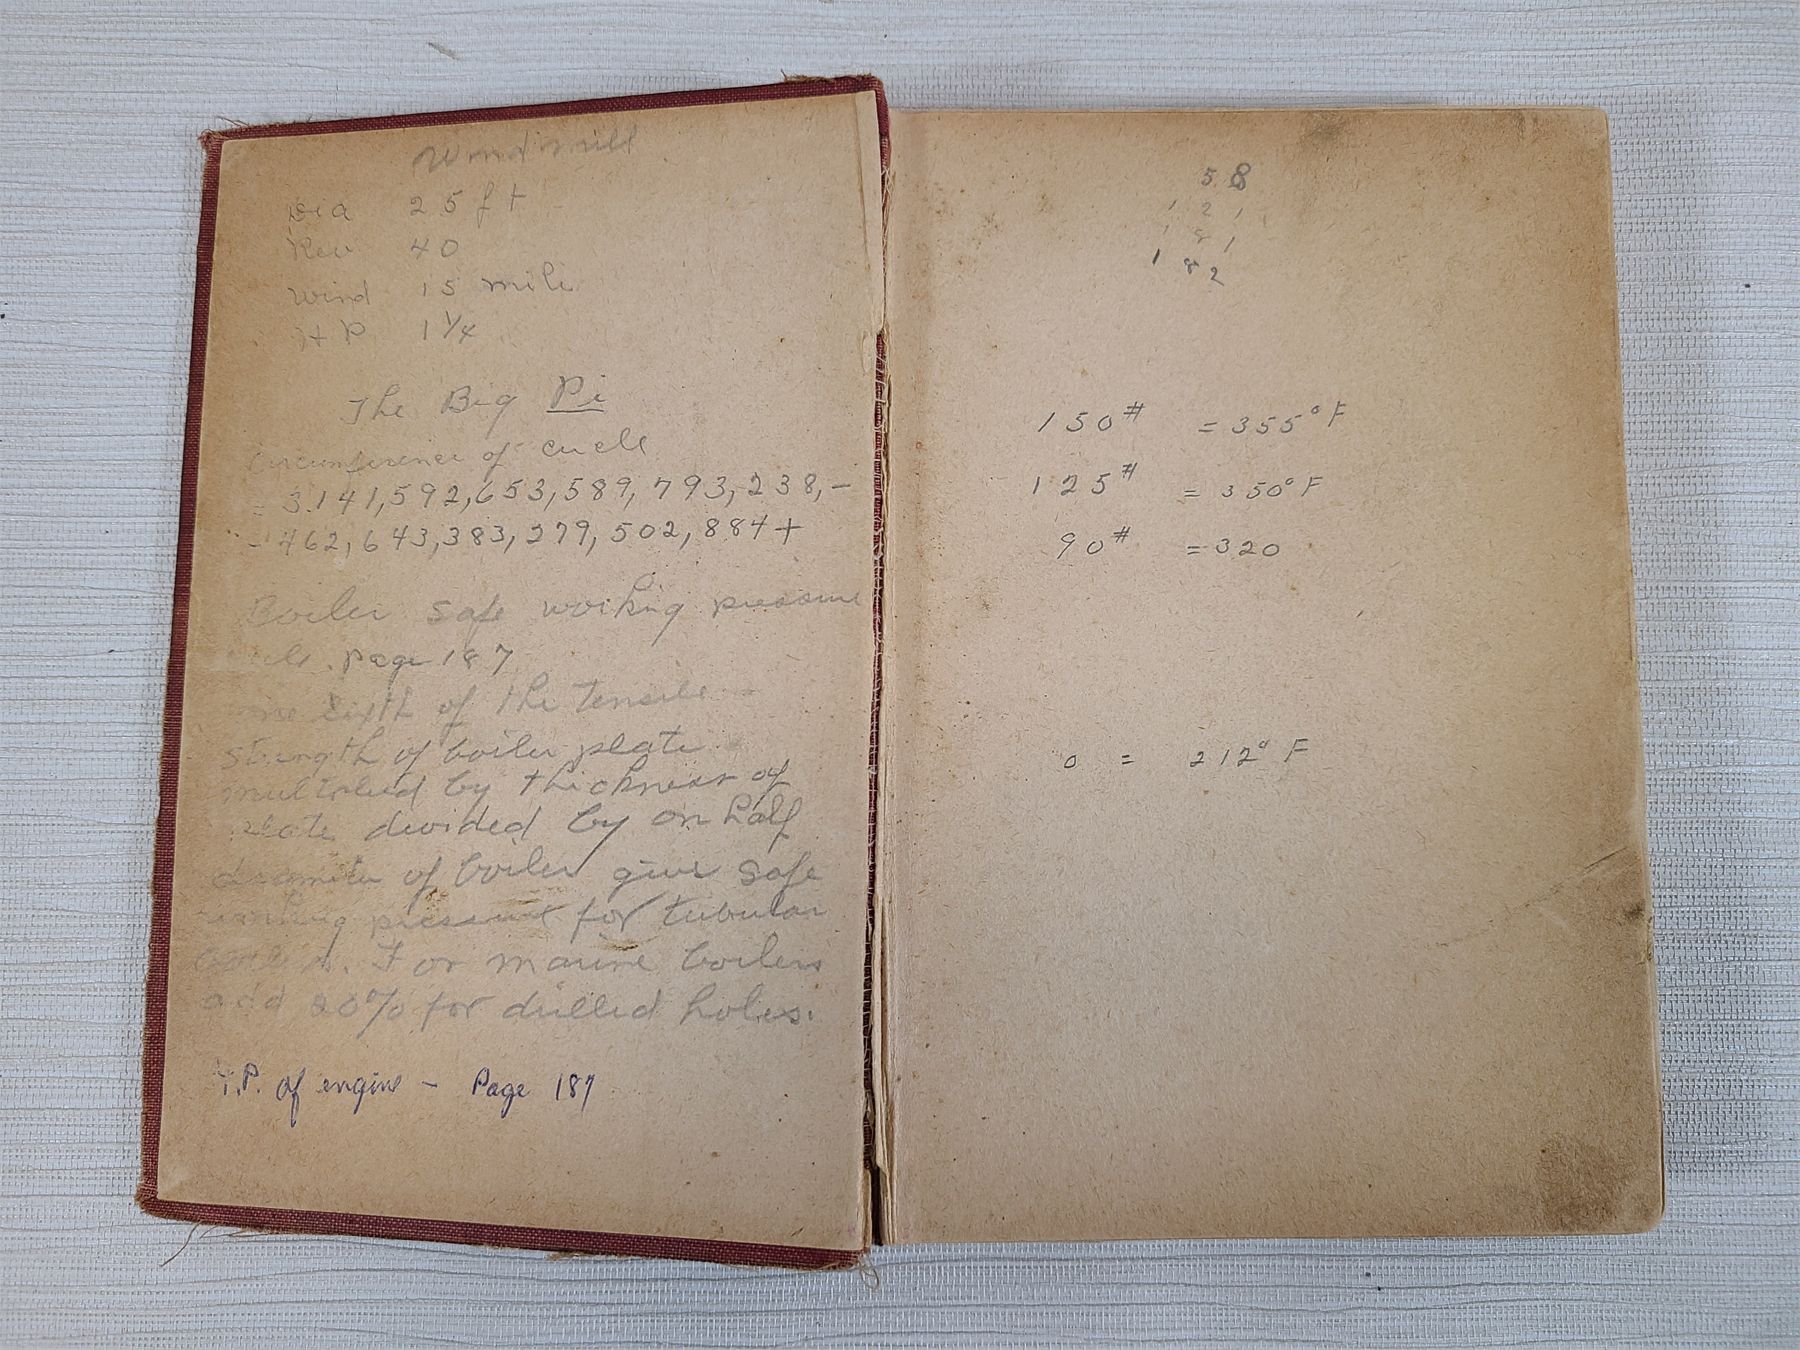 Windmill
Dia 25 ft
Rev 40
Wind 15 mile
H P 1 1/4
The Big Pi
Circumference of circle
= 3.141,592,653,589,793,238,-
- 462,643,383,279,502,884+
Boiler safe working pressure
page 187
one sixth of the tensile
strength of boiler plate
multiplied by thickness of
plate divided by on half
diameter of boiler give safe
working pressure for tubular
boilers. For marine boilers
add 20% for drilled holes.
of engine - Page 187
58
1 2 1
1 8 1
1 8 2
150# = 355° F
125# = 350° F
90# = 320
0 = 212° F